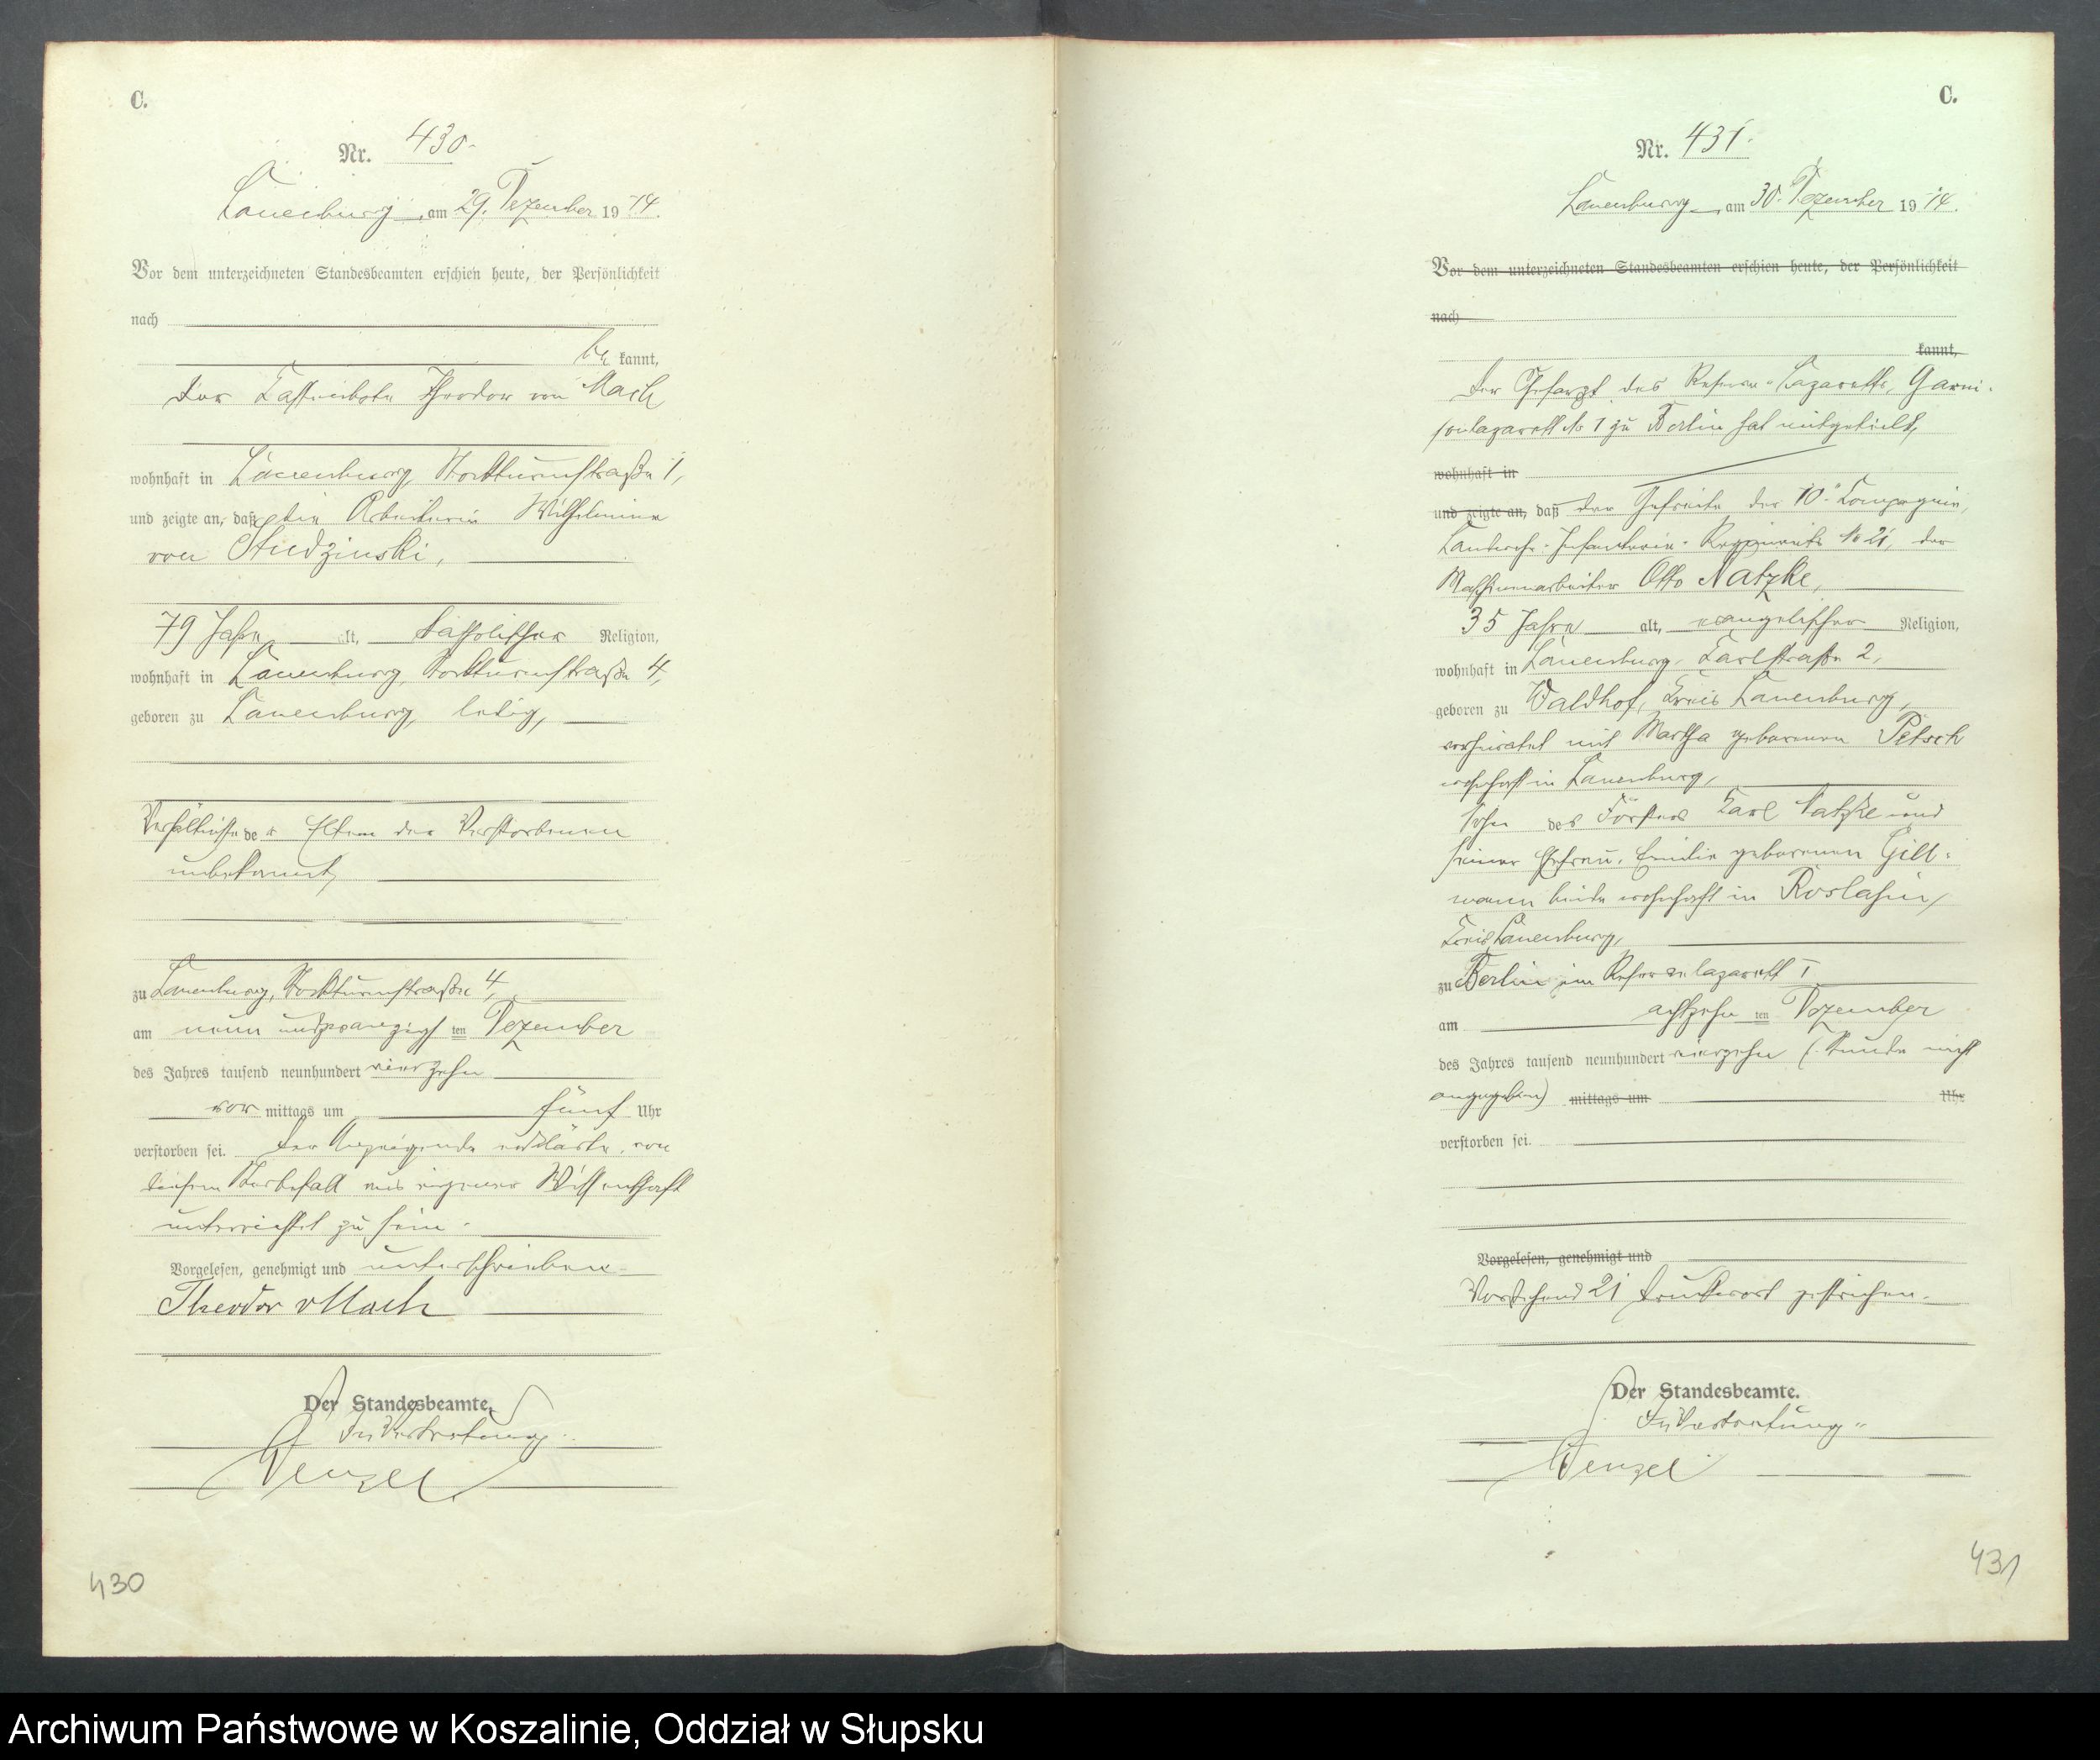 C.
Nr. 430.
Lauenburg, am 29. Dezember 1914.
Vor dem unterzeichneten Standesbeamten erschien heute, der Persönlichkeit
nach
be kannt,
der Kassenbote Theodor von Mach
wohnhaft in Lauenburg, Stockturmstraße 1,
und zeigte an, daß die Arbeiterin Wilhelmine
von Studzinski,
79 Jahre alt, katholischer Religion,
wohnhaft in Lauenburg, Stockturmstraße 4,
geboren zu Lauenburg, ledig,
Verhältnisse der Eltern der Verstorbenen
unbekannt,
zu Lauenburg, Stockturmstraße 4,
am neun und zwanzigsten Dezember
des Jahres tausend neunhundert vierzehn
vor mittags um fünf Uhr
verstorben sei. Der Anzeigende erklärte, von
diesem Sterbefall aus eigener Wissenschaft
unterrichtet zu sein.
Vorgelesen, genehmigt und unterschrieben
Theodor v Mach
Der Standesbeamte.
In Vertretung.
Wenzel
430
C.
Nr. 431.
Lauenburg, am 30. Dezember 1914.
Vor dem unterzeichneten Standesbeamten erschien heute, der Persönlichkeit
nach
kannt,
Der Chefarzt des Reserve-Lazaretts, Garni-
sonlazarett No 1 zu Berlin hat mitgeteilt,
wohnhaft in
und zeigte an, daß der Gefreite der 10. Kompagnie,
Landwehr-Infanterie-Regiments No 21, der
Maschinenarbeiter Otto Natzke,
35 Jahre alt, evangelischer Religion,
wohnhaft in Lauenburg, Karlstraße 2,
geboren zu Waldhof, Kreis Lauenburg,
verheiratet mit Martha geborenen Petsch
wohnhaft in Lauenburg,
Sohn des Försters Karl Natzke und
seiner Ehefrau Emilie geborenen Gill-
mann beide wohnhaft in Roslasin,
Kreis Lauenburg,
zu Berlin im Reservelazarett I
am achtzehnten Dezember
des Jahres tausend neunhundert vierzehn (Stunde nicht
angegeben) mittags um Uhr
verstorben sei.
Vorgelesen, genehmigt und
Vorstehend 21 Druckwort gestrichen.
Der Standesbeamte.
In Vertretung
Wenzel
431
Archiwum Państwowe w Koszalinie, Oddział w Słupsku